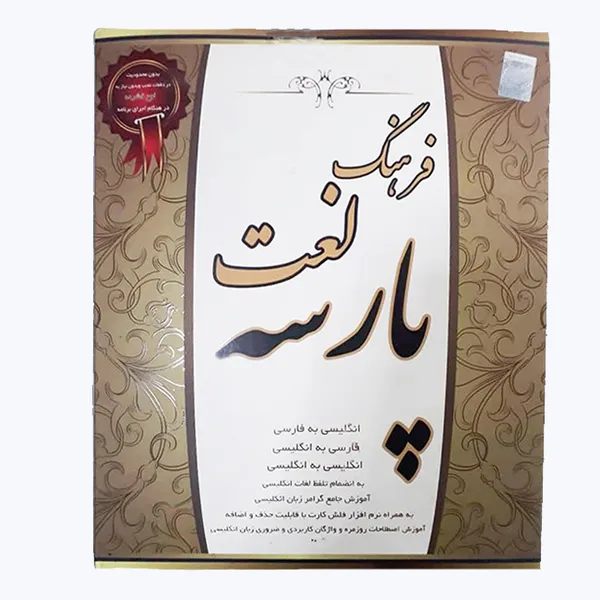 بدون محدودیت
در دفعات نصب وبدون نیاز به
لوح فشرده
در هنگام اجرای برنامه
فرهنگ
لغت
پارسه
انگلیسی به فارسی
فارسی به انگلیسی
انگلیسی به انگلیسی
به انضمام تلفظ لغات انگلیسی
آموزش جامع گرامر زبان انگلیسی
به همراه نرم افزار فلش کارت با قابلیت حذف و اضافه
آموزش اصطلاحات روزمره و واژگان کاربردی و ضروری زبان انگلیسی